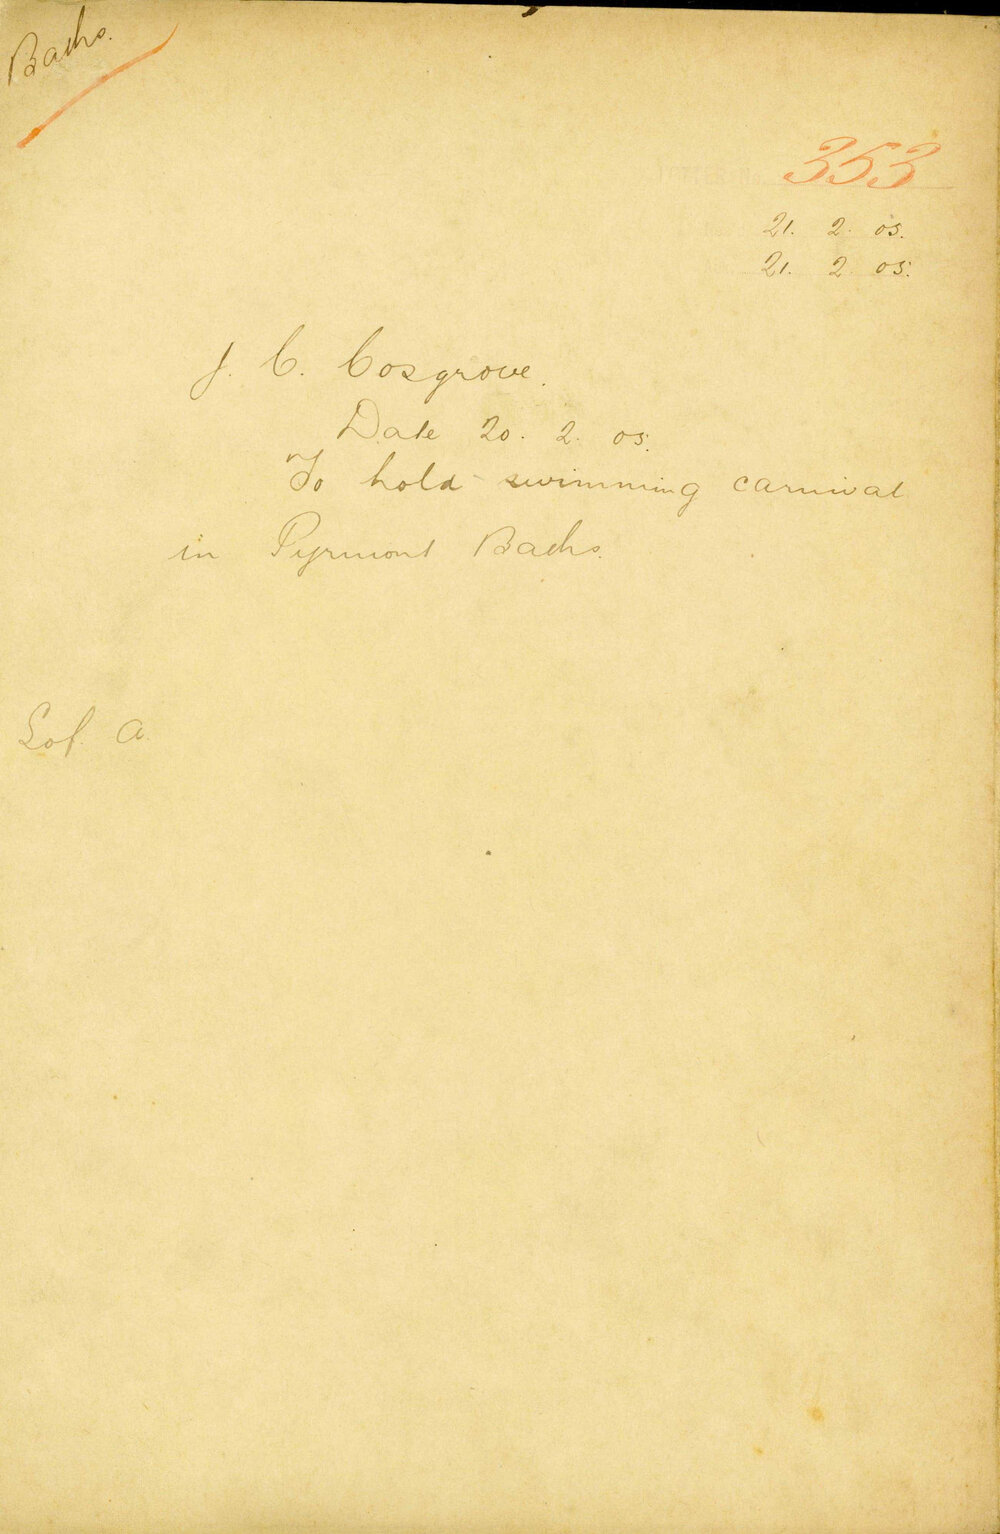 Baths.
353
21. 2. 05.
21. 2. 05.
J. C. Cosgrove.
Date 20. 2. 05.
To hold swimming carnival
in Pyrmont Baths.
A.